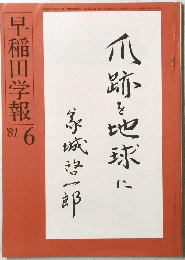 早稲田学報
'81 6
爪跡を地球に
象城啓一郎